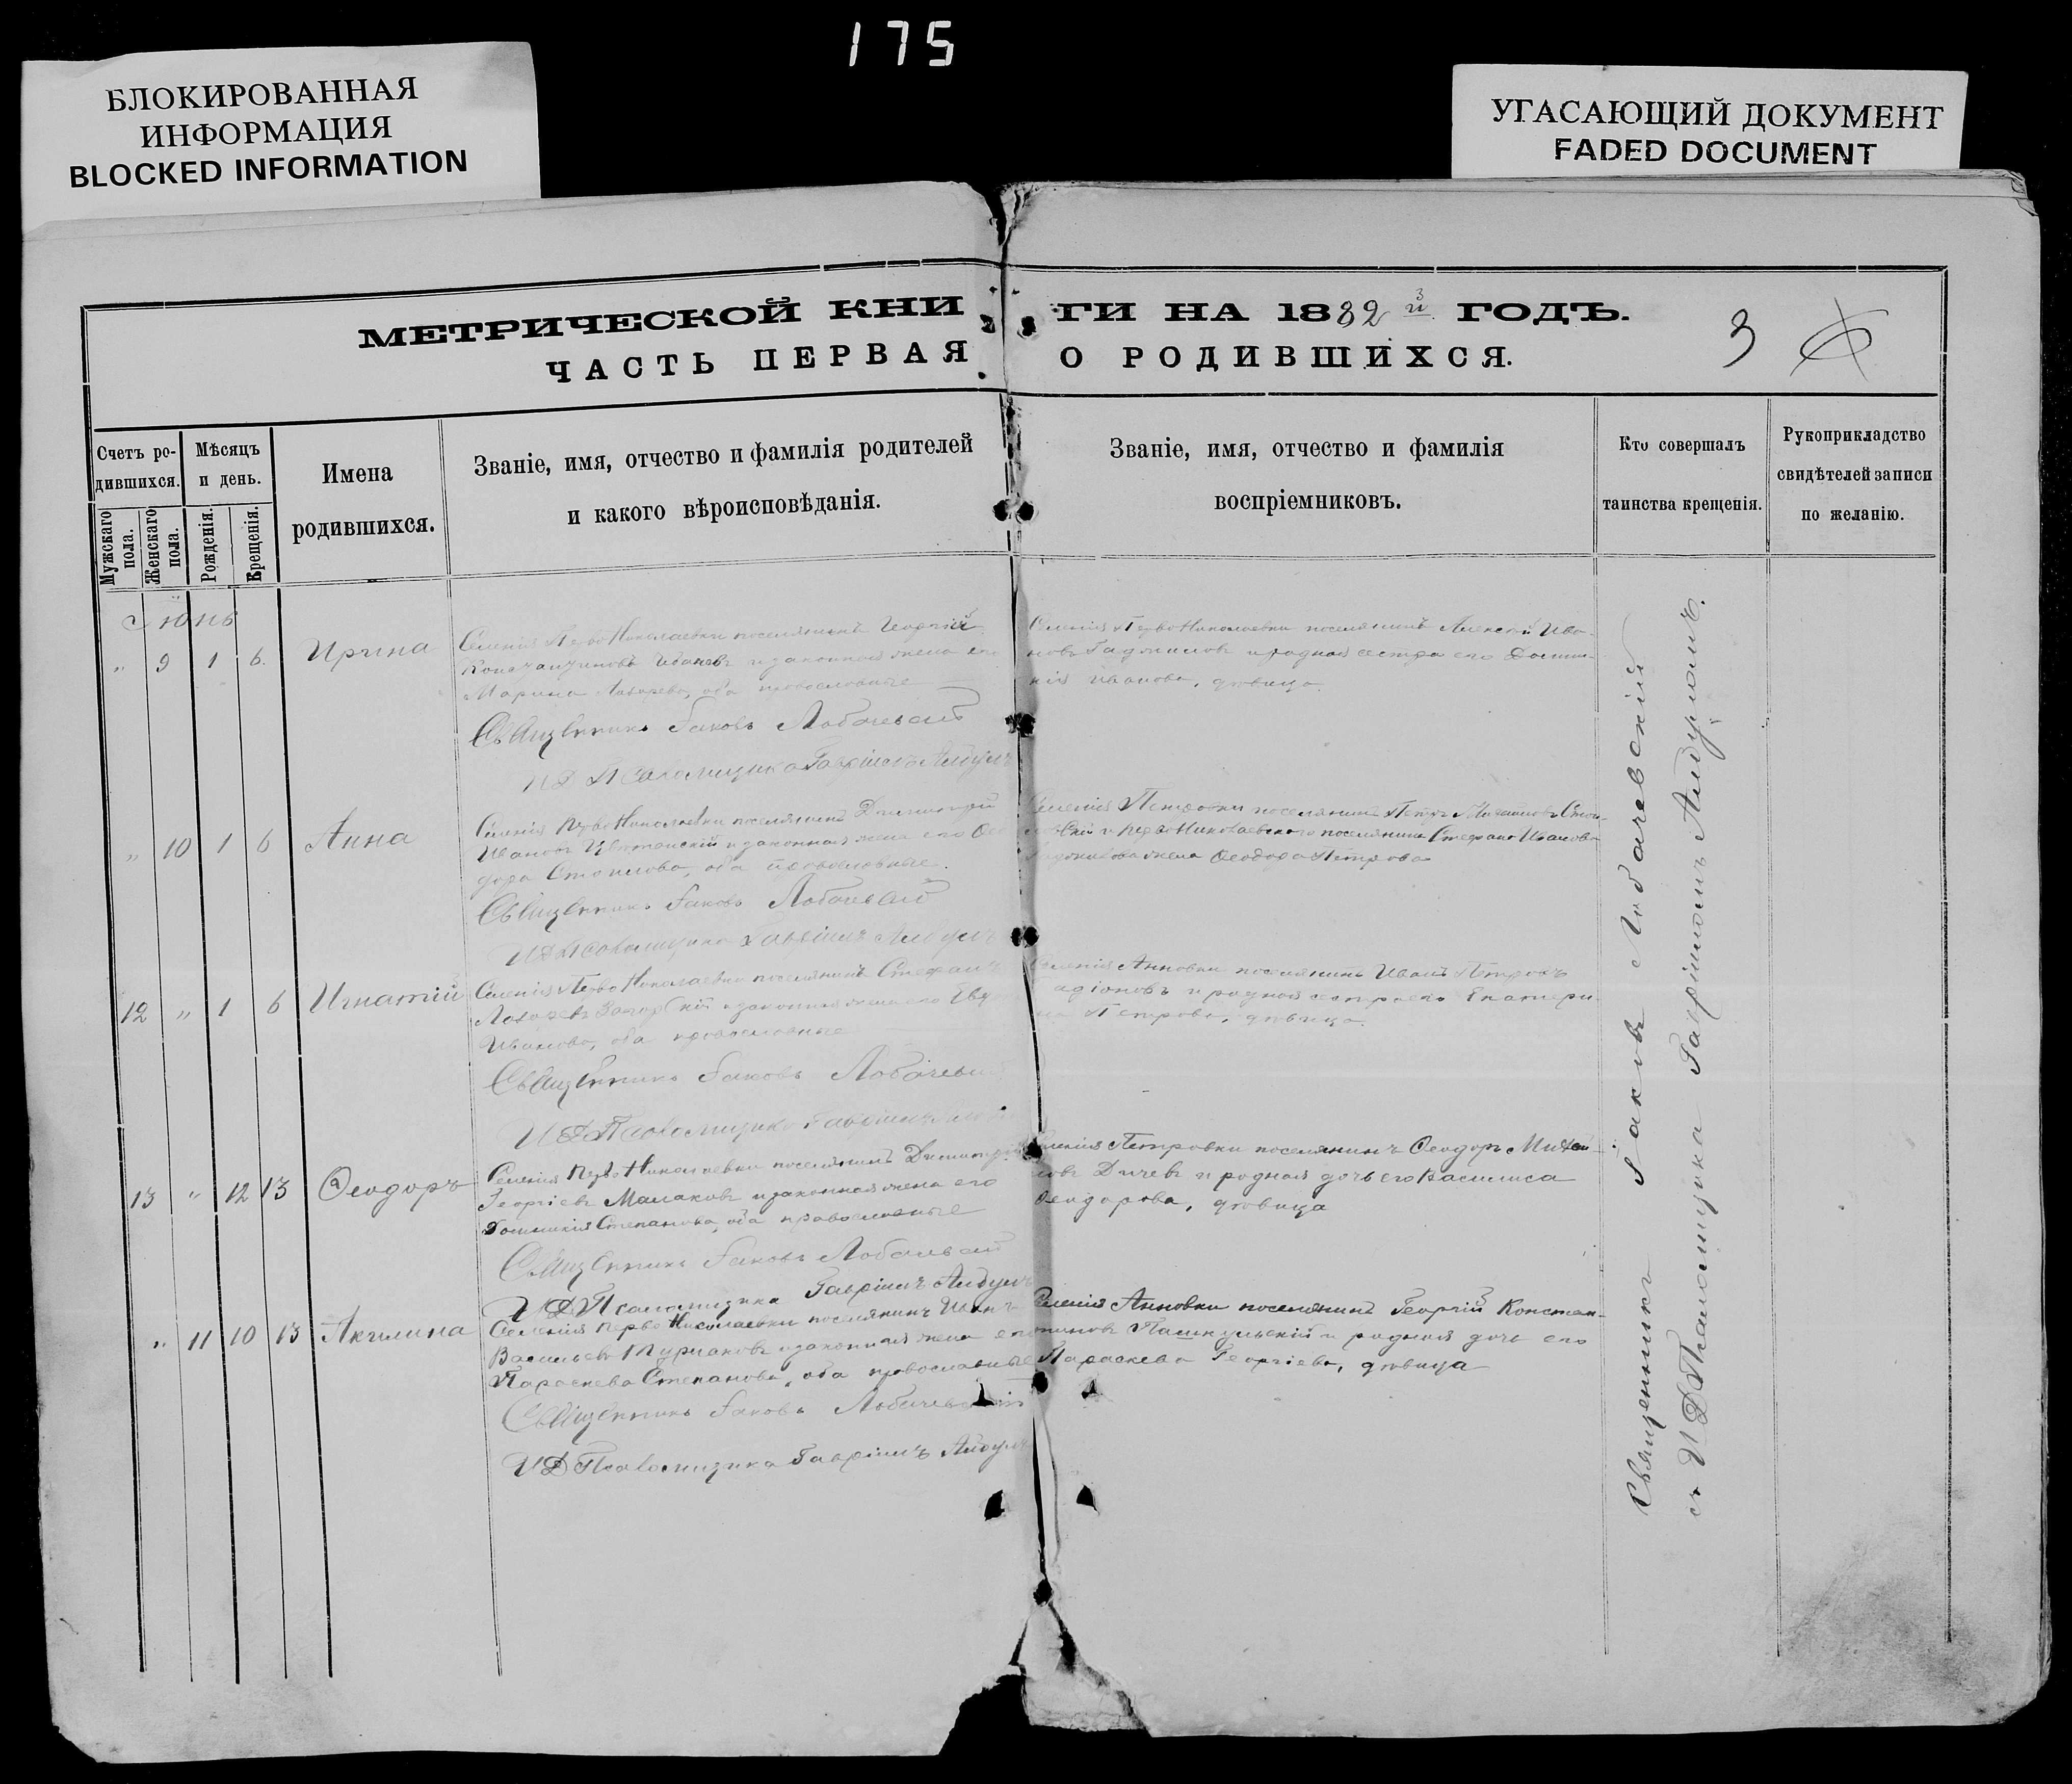 175
БЛОКИРОВАННАЯ
ИНФОРМАЦИЯ
BLOCKED INFORMATION
УГАСАЮЩИЙ ДОКУМЕНТ
FADED DOCUMENT
МЕТРИЧЕСКОЙ КНИГИ НА 1882 й ГОДЪ.
3
ЧАСТЬ ПЕРВАЯ О РОДИВШИХСЯ.
Счетъ родившихся.
Мужскаго пола.
Женскаго пола.
Мѣсяцъ и день.
Рожденія.
Крещенія.
Имена
родившихся.
Званіе, имя, отчество и фамилія родителей
и какого вѣроисповѣданія.
Званіе, имя, отчество и фамилія
воспріемниковъ.
Кто совершалъ
таинства крещенія.
Рукоприкладство
свидѣтелей записи
по желанію.
Іюнь
" 9 1 6 Ирина
Селенія Перво Николаевки поселянинъ Георгій
Константиновъ Ивановъ и законная жена его
Марина Лазарева, оба православные
Селенія Перво Николаевки поселянинъ Алексѣй Ива-
новъ и родная сестра его
Иванова, дѣвица
Священникъ Іаковъ Лобачевскій
И Д Псаломщика Гавріилъ
" 10 1 6 Анна
Селенія Перво Николаевки поселянинъ Димитрій
Ивановъ и законная жена его Ѳео
дора Стоилова, оба православные.
Селенія Петровки поселянинъ Петръ
и Перво Николаевскаго поселянина Стефана Иванова
жена Ѳеодора Петрова
Священникъ Іаковъ Лобачевскій
И Д Псаломщика Гавріилъ
12 " 1 6 Игнатій
Селенія Перво Николаевки поселянинъ Стефанъ
и законная жена его
Иванова, оба православные
Селенія Анновки поселянинъ Иванъ Петровъ
и родная сестра его Екатери-
на Петрова, дѣвица.
Священникъ Іаковъ Лобачевскій
И Д Псаломщика Гавріилъ
13 " 12 13 Ѳеодоръ
Селенія Перво Николаевки поселянинъ Димитрій
Георгіевъ Малаковъ и законная жена его
Домникія Степанова, оба православные
Селенія Петровки поселянинъ Ѳеодоръ Михай-
ловъ Дичевъ и родная дочь его Василиса
Ѳеодорова, дѣвица
Священникъ Іаковъ Лобачевскій
И Д Псаломщика Гавріилъ
" 11 10 13 Акилина
Селенія Перво Николаевки поселянинъ Иванъ
Васильевъ и законная жена его
Параскева Степанова, оба православные
Селенія Анновки поселянинъ Георгій Констан-
тиновъ и родная дочь его
Параскева Георгіева, дѣвица
Священникъ Іаковъ Лобачевскій
И Д Псаломщика Гавріилъ
Священникъ Іаковъ Лобачевскій
съ И Д Псаломщика Гавріиломъ